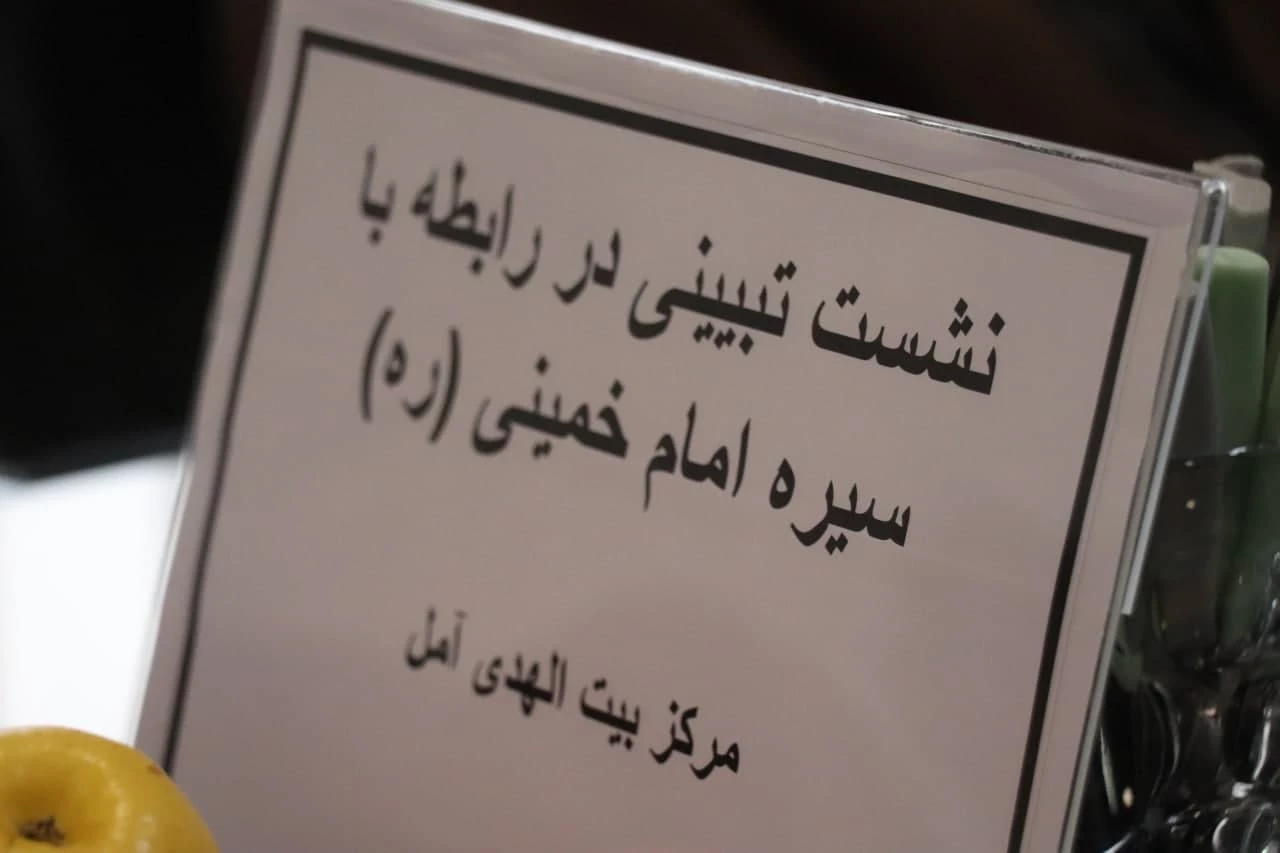 نشست تبیینی در رابطه با
سیره امام خمینی (ره)
مرکز بیت الهدی آمل